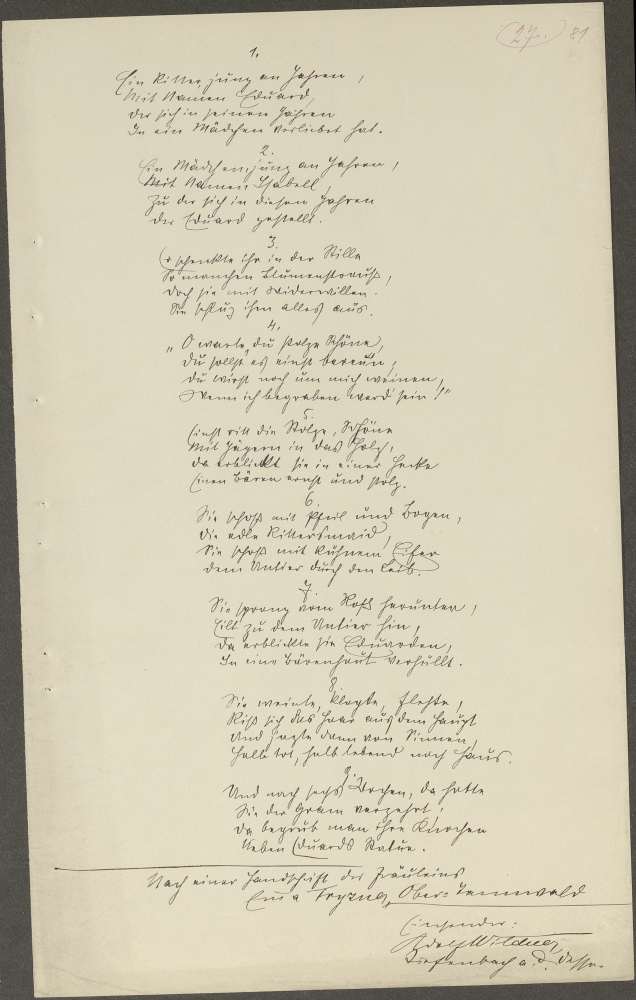 (27.) 81
1.
Ein Ritter, jung an Jahren,
Mit Namen Eduard,
der sich in seinen Jahren
In ein Mädchen verliebet hat.
2.
Ein Mädchen, jung an Jahren,
Mit Namen Isabell,
Zu der sich in diesen Jahren
der Eduard gesellt.
3.
Er schenkte ihr in der Stille
So manchen Blumenstrauß,
doch sie mit Widerwillen
Sie schlug ihm alles aus.
4.
„O warte, du stolze Schöne,
du sollst es einst bereu'n,
du wirst noch um mich weinen,
Wenn ich begraben werd' sein!"
5.
Einst ritt die Stolze, Schöne
Mit Jägern in das Holz,
da erblickt sie in einer Hecke
Einen Bären ernst und stolz.
6.
Sie schoß mit Pfeil und Bogen,
die edle Rittersmaid,
Sie schoß mit kühnem Eifer
dem Untier durch den Leib.
7.
Sie sprang vom Roß herunter,
Eilt zu dem Untier hin,
da erblickte sie Eduarden,
In eine Bärenhaut verhüllt.
8.
Sie weinte, klagte, flehte,
Riß sich das Haar aus dem Haupt
Und jagte dann von Sinnen,
halb tot, halb lebend nach Haus.
9.
Und nach sechs Wochen, da hatte
Sie der Gram verzehrt,
da begrub man ihre Knochen
Neben Eduards Statue.
Nach einer Handschrift des Fräuleins
Ober-Tannwald
Einsender:
Adolf Wildner,
Tiefenbach a. d. Desse.